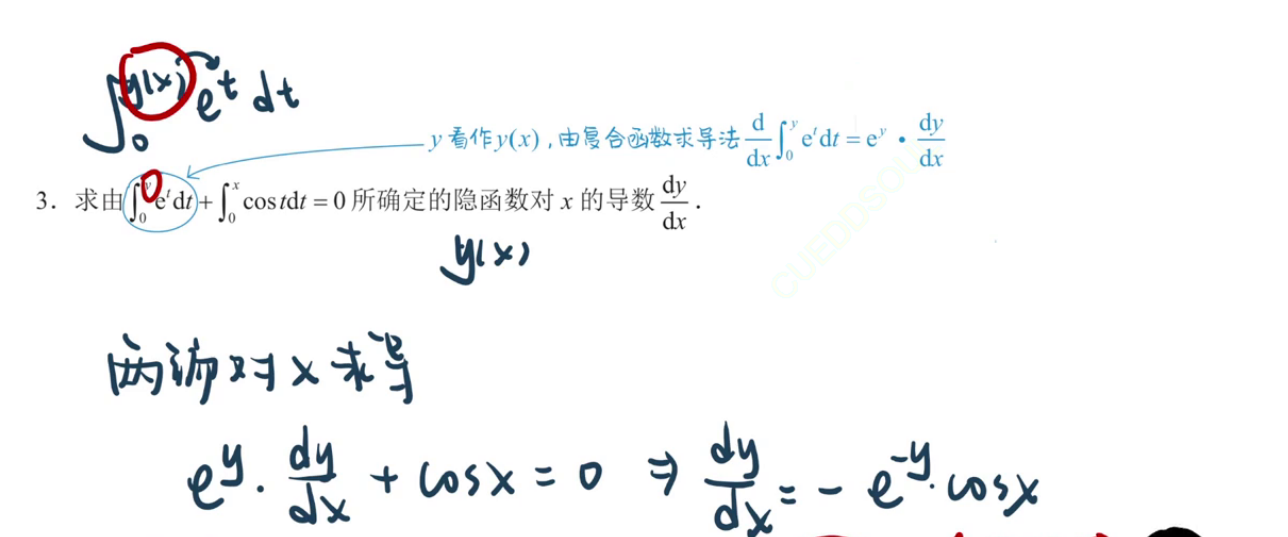 ∫₀^{y(x)} e^t dt
y 看作 y(x) , 由复合函数求导法 d/dx ∫₀^y e^t dt = e^y · dy/dx
3. 求由 ∫₀^y e^t dt + ∫₀^x cos t dt = 0 所确定的隐函数对 x 的导数 dy/dx .
y(x)
两端对 x 求导
e^y · dy/dx + cosx = 0 ⇒ dy/dx = - e^{-y} · cosx